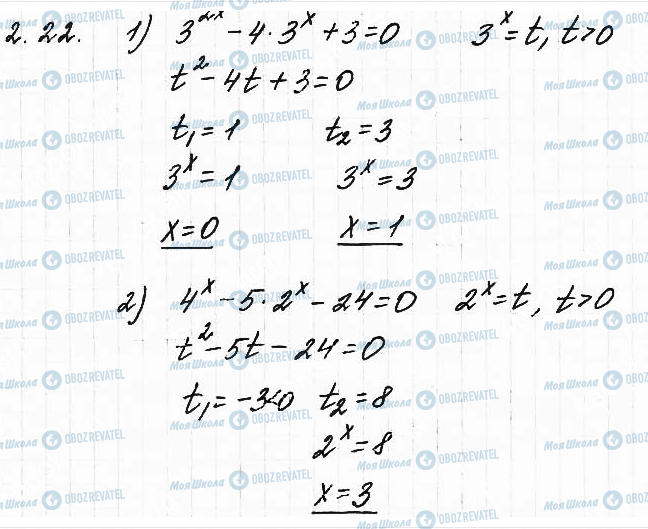 2.22. 1) 3^{2x} - 4·3^x + 3 = 0 3^x = t, t > 0
t^2 - 4t + 3 = 0
t_1 = 1 t_2 = 3
3^x = 1 3^x = 3
x = 0 x = 1
2) 4^x - 5·2^x - 24 = 0 2^x = t, t > 0
t^2 - 5t - 24 = 0
t_1 = -3 < 0 t_2 = 8
2^x = 8
x = 3
МояШкола OBOZREVATEL